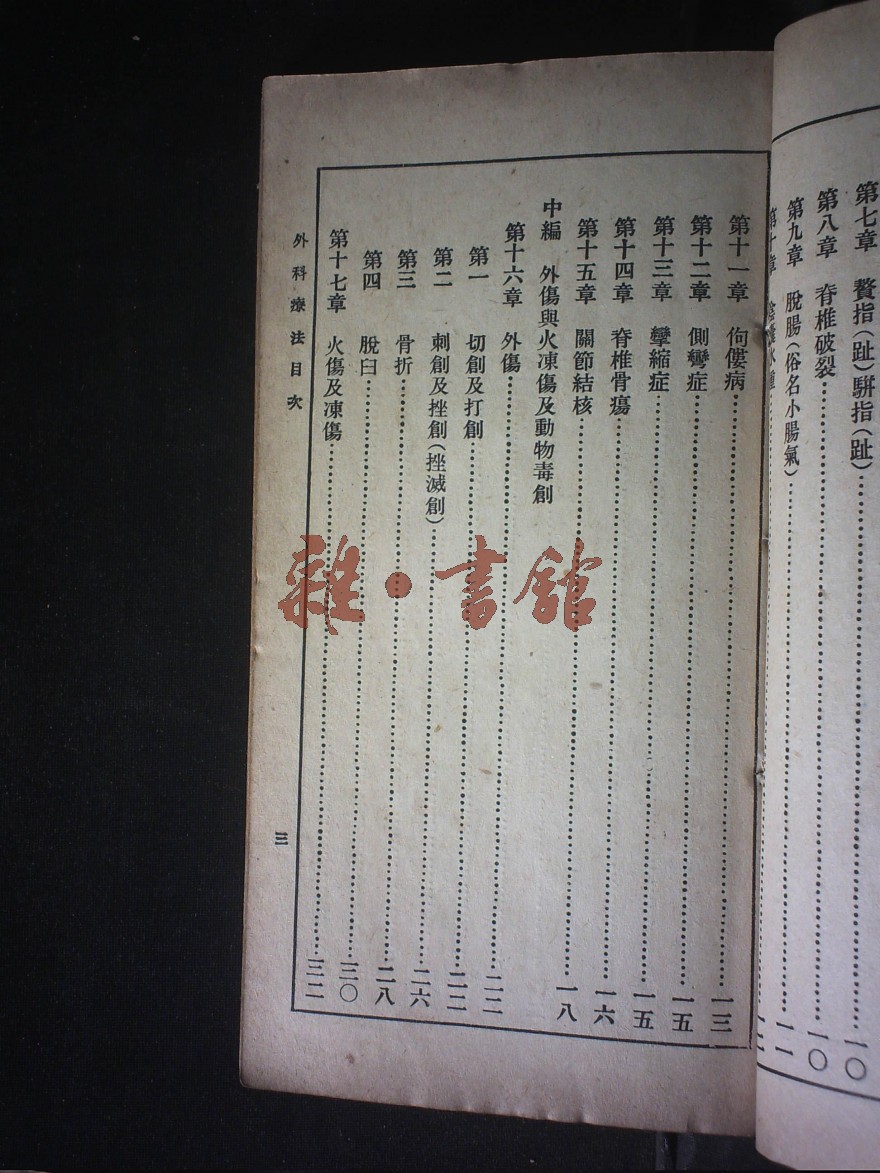 第七章　贅指（趾）駢指（趾）……一〇
第八章　脊椎破裂……一〇
第九章　脫腸（俗名小腸氣）……一一
第十章　陰囊水腫……一二
第十一章　佝僂病……一三
第十二章　側彎症……一五
第十三章　攣縮症……一五
第十四章　脊椎骨瘍……一六
第十五章　關節結核……一八
中編　外傷與火凍傷及動物毒創
第十六章　外傷……二二
第一　切創及打創……二二
第二　刺創及挫創（挫滅創）……二六
第三　骨折……二八
第四　脫臼……三〇
第十七章　火傷及凍傷……三二
外科療法目次
三
雜·書館